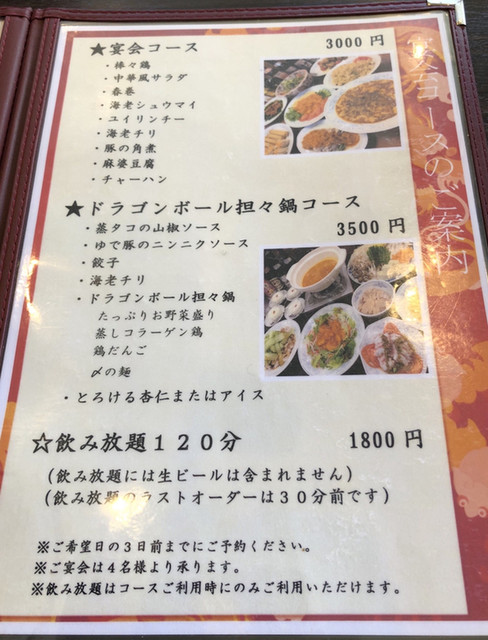 ★宴会コース 3000 円
・棒々鶏
・中華風サラダ
・春巻
・海老シュウマイ
・ユイリンチー
・海老チリ
・豚の角煮
・麻婆豆腐
・チャーハン
★ドラゴンボール担々鍋コース
3500 円
・蒸タコの山椒ソース
・ゆで豚のニンニクソース
・餃子
・海老チリ
・ドラゴンボール担々鍋
たっぷりお野菜盛り
蒸しコラーゲン鶏
鶏だんご
〆の麺
・とろける杏仁またはアイス
☆飲み放題１２０分 1800 円
（飲み放題には生ビールは含まれません）
（飲み放題のラストオーダーは３０分前です）
※ご希望日の３日前までにご予約ください。
※ご宴会は４名様より承ります。
※飲み放題はコースご利用時にのみご利用いただけます。
コースのご案内